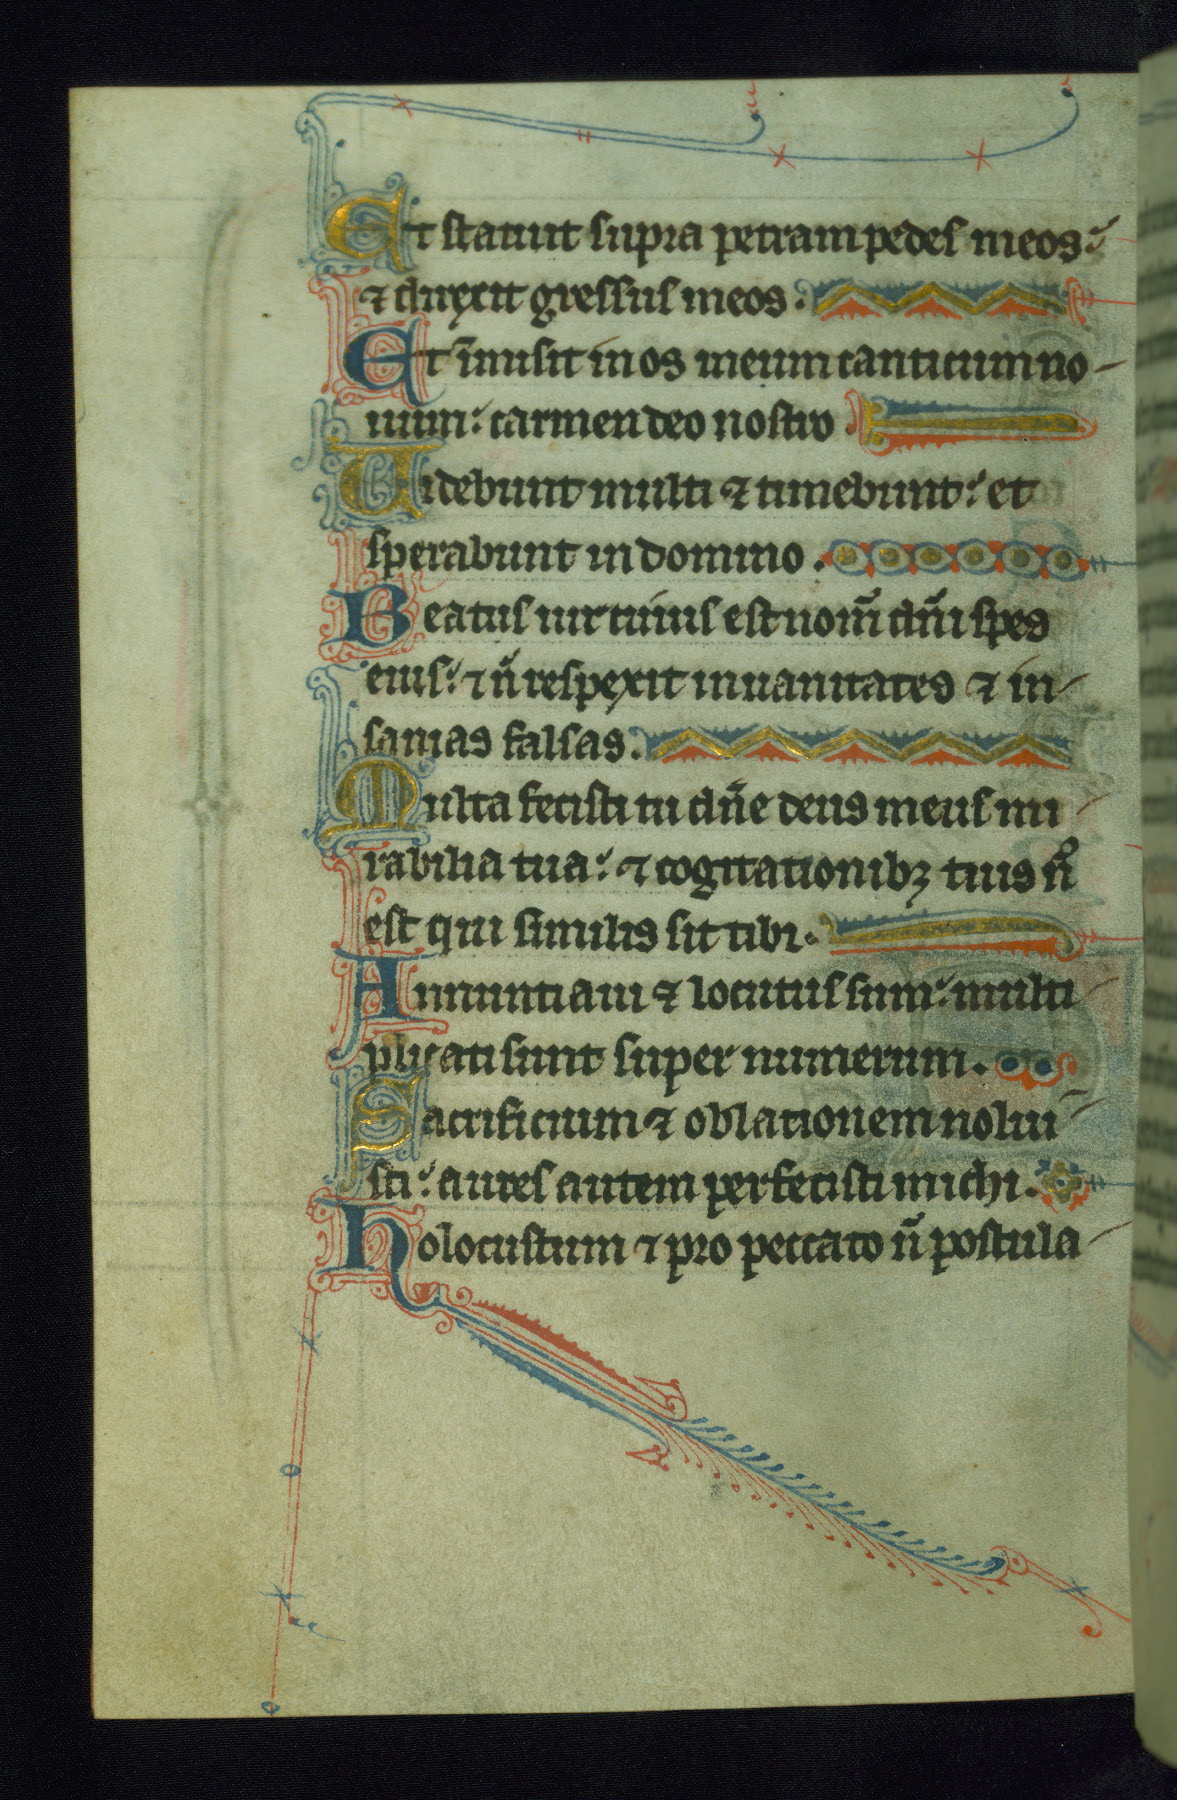 Et statuit supra petram pedes meos:
⁊ direxit gressus meos.
Et īmisit in os meum canticum no-
uum: carmen deo nostro
Uidebunt multi ⁊ timebunt: et
sperabunt in domino.
Beatus uir cuius est nom̄ dñi spes
eius: ⁊ ñ respexit in uanitates ⁊ in-
sanias falsas.
Multa fecisti tu dñe deus meus mi
rabilia tua: ⁊ cogitationibꝫ tuis ñ
est qui similis sit tibi.
Annuntiaui ⁊ locutus sum: multi
plicati sunt super numerum.
Sacrificium ⁊ oblationem nolui-
sti: aures autem perfecisti michi.
Holocustum ⁊ pro peccato ñ postula-